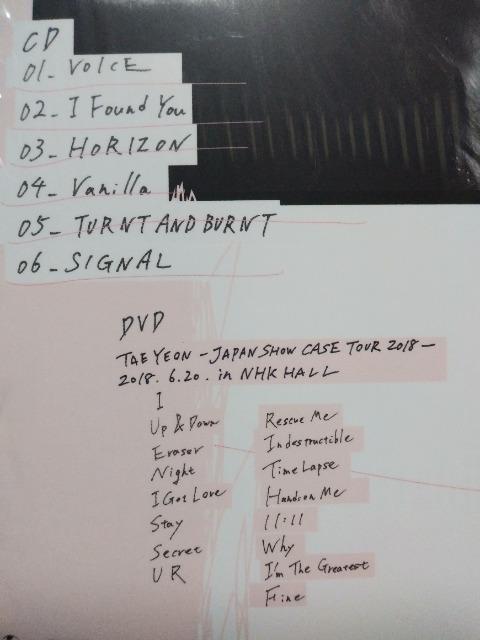 CD
01_ VOICE
02_ I Found You
03_ HORIZON
04_ Vanilla
05_ TURNT AND BURNT
06_ SIGNAL
DVD
TAEYEON - JAPAN SHOW CASE TOUR 2018 -
2018. 6.20. in NHK HALL
I
Up & Down
Eraser
Night
I Got Love
Stay
Secret
U R
Rescue Me
Indestructible
Time Lapse
Hands on Me
11:11
Why
I'm The Greatest
Fine